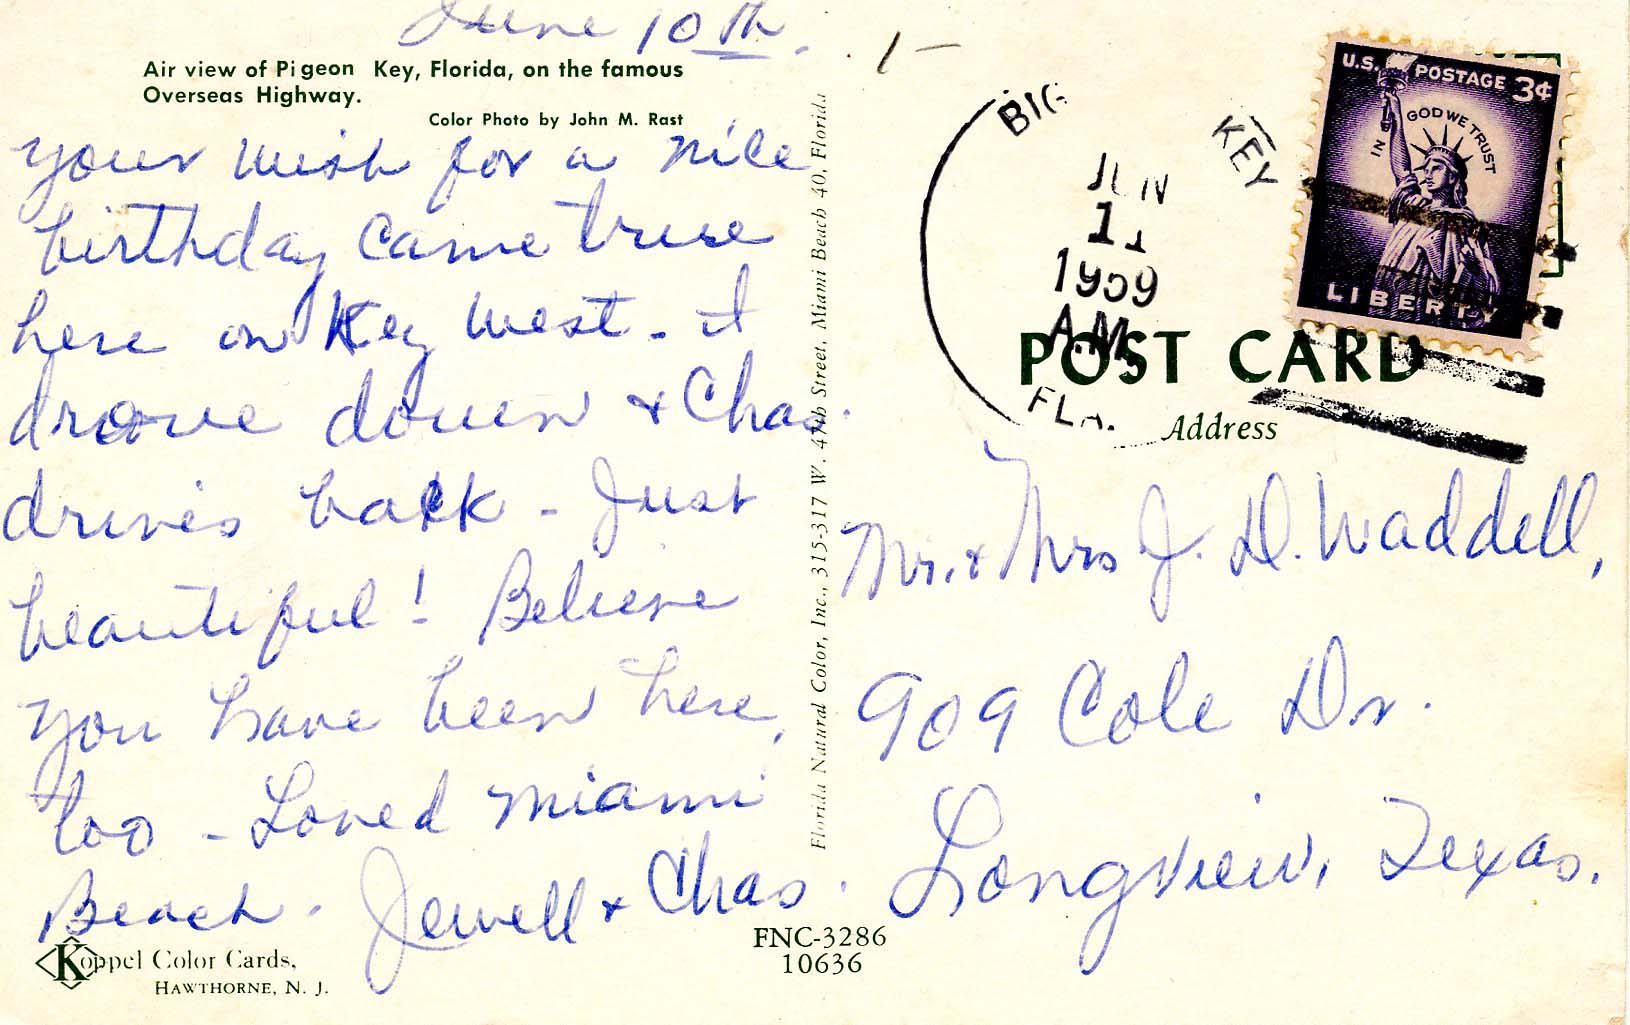 June 10th.
1-
Air view of Pigeon Key, Florida, on the famous
Overseas Highway.
Color Photo by John M. Rast
your wish for a nice
birthday came true
here on Key West - I
drove down & Chas.
drives back - Just
beautiful! Believe
you have been here,
too - Loved Miami
Beach. Jewell & Chas.
Koppel Color Cards,
HAWTHORNE, N. J.
Florida Natural Color, Inc., 315-317 W. 47th Street, Miami Beach 40, Florida
FNC-3286
10636
BIG KEY
JUN
11
1959
A.M.
FLA.
U.S. POSTAGE 3¢
IN GOD WE TRUST
LIBERTY
POST CARD
Address
Mr. & Mrs J. D. Waddell,
909 Cole Dr.
Longview, Texas.